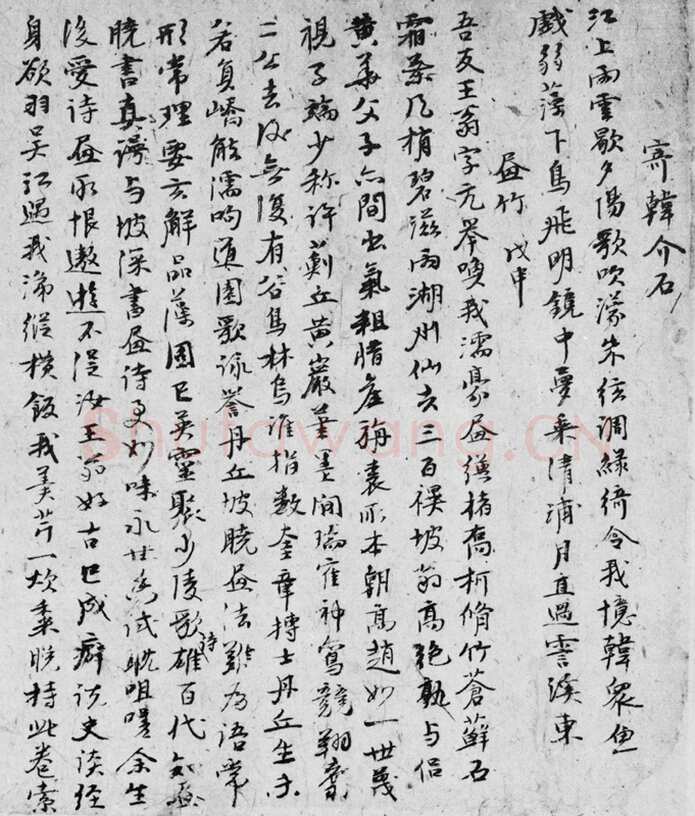 寄韓介石
江上雨雲歇夕陽歌吹濛朱弦調綠綺令我憶韓衆魚
戲弱藻下鳥飛明鏡中夢乘清浦月直過霅溪東
畫竹 戊申
吾友王翁字元舉喚我濡豪畫繭楮喬柯脩竹蒼蘚石
霜葉風梢碧滋雨湖州仙去三百禩坡翁高絶孰与侣
黄華父子亦間出氣粗腊産旃裘所本朝高趙妙一世蔑
視子端少称許薊丘黄巖筆墨間瑞雀神鸞競翔翥
二公去後無復有谷鳥林烏誰指數奎章博士丹丘生亦
若負嶠能濡呴道園歌詠譽丹丘坡曉畫法難為語常
形常理要玄解品藻固已英靈聚少陵歌詩雄百代知畫
曉書真謾与坡深書畫詩更妙味永甘為試耽咀嚼余生
後受詩畫所恨遨遊不從汝王翁好古已成癖説史談經
身欲羽吴江過我沸縱横飯我美芹一炊黍晚持此卷索
Shufawang.CN